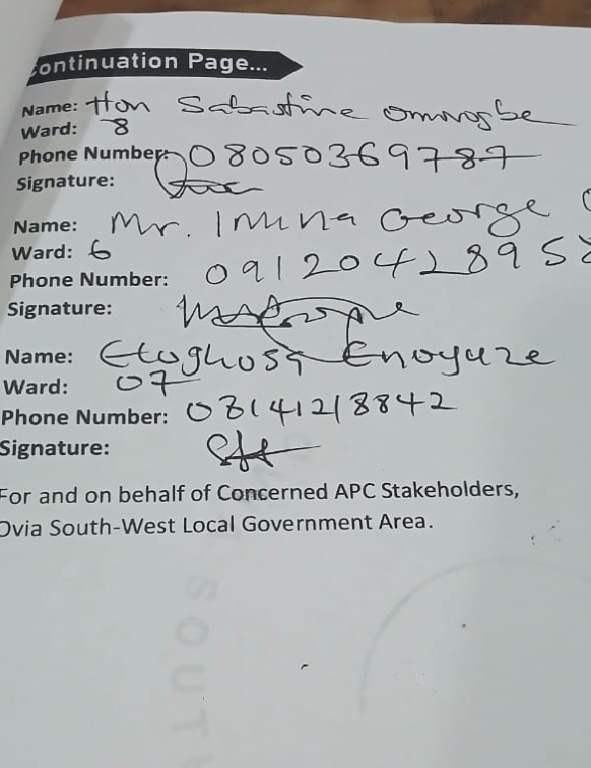 Continuation Page...
Name: Hon Sabastine Omwogbe
Ward: 8
Phone Number: 08050369787
Signature:
Name: Mr. Imina George
Ward: 6
Phone Number: 09120428958
Signature:
Name: Etoghosa Enoyuze
Ward: 07
Phone Number: 08141218842
Signature:
For and on behalf of Concerned APC Stakeholders,
Ovia South-West Local Government Area.
SOUTH